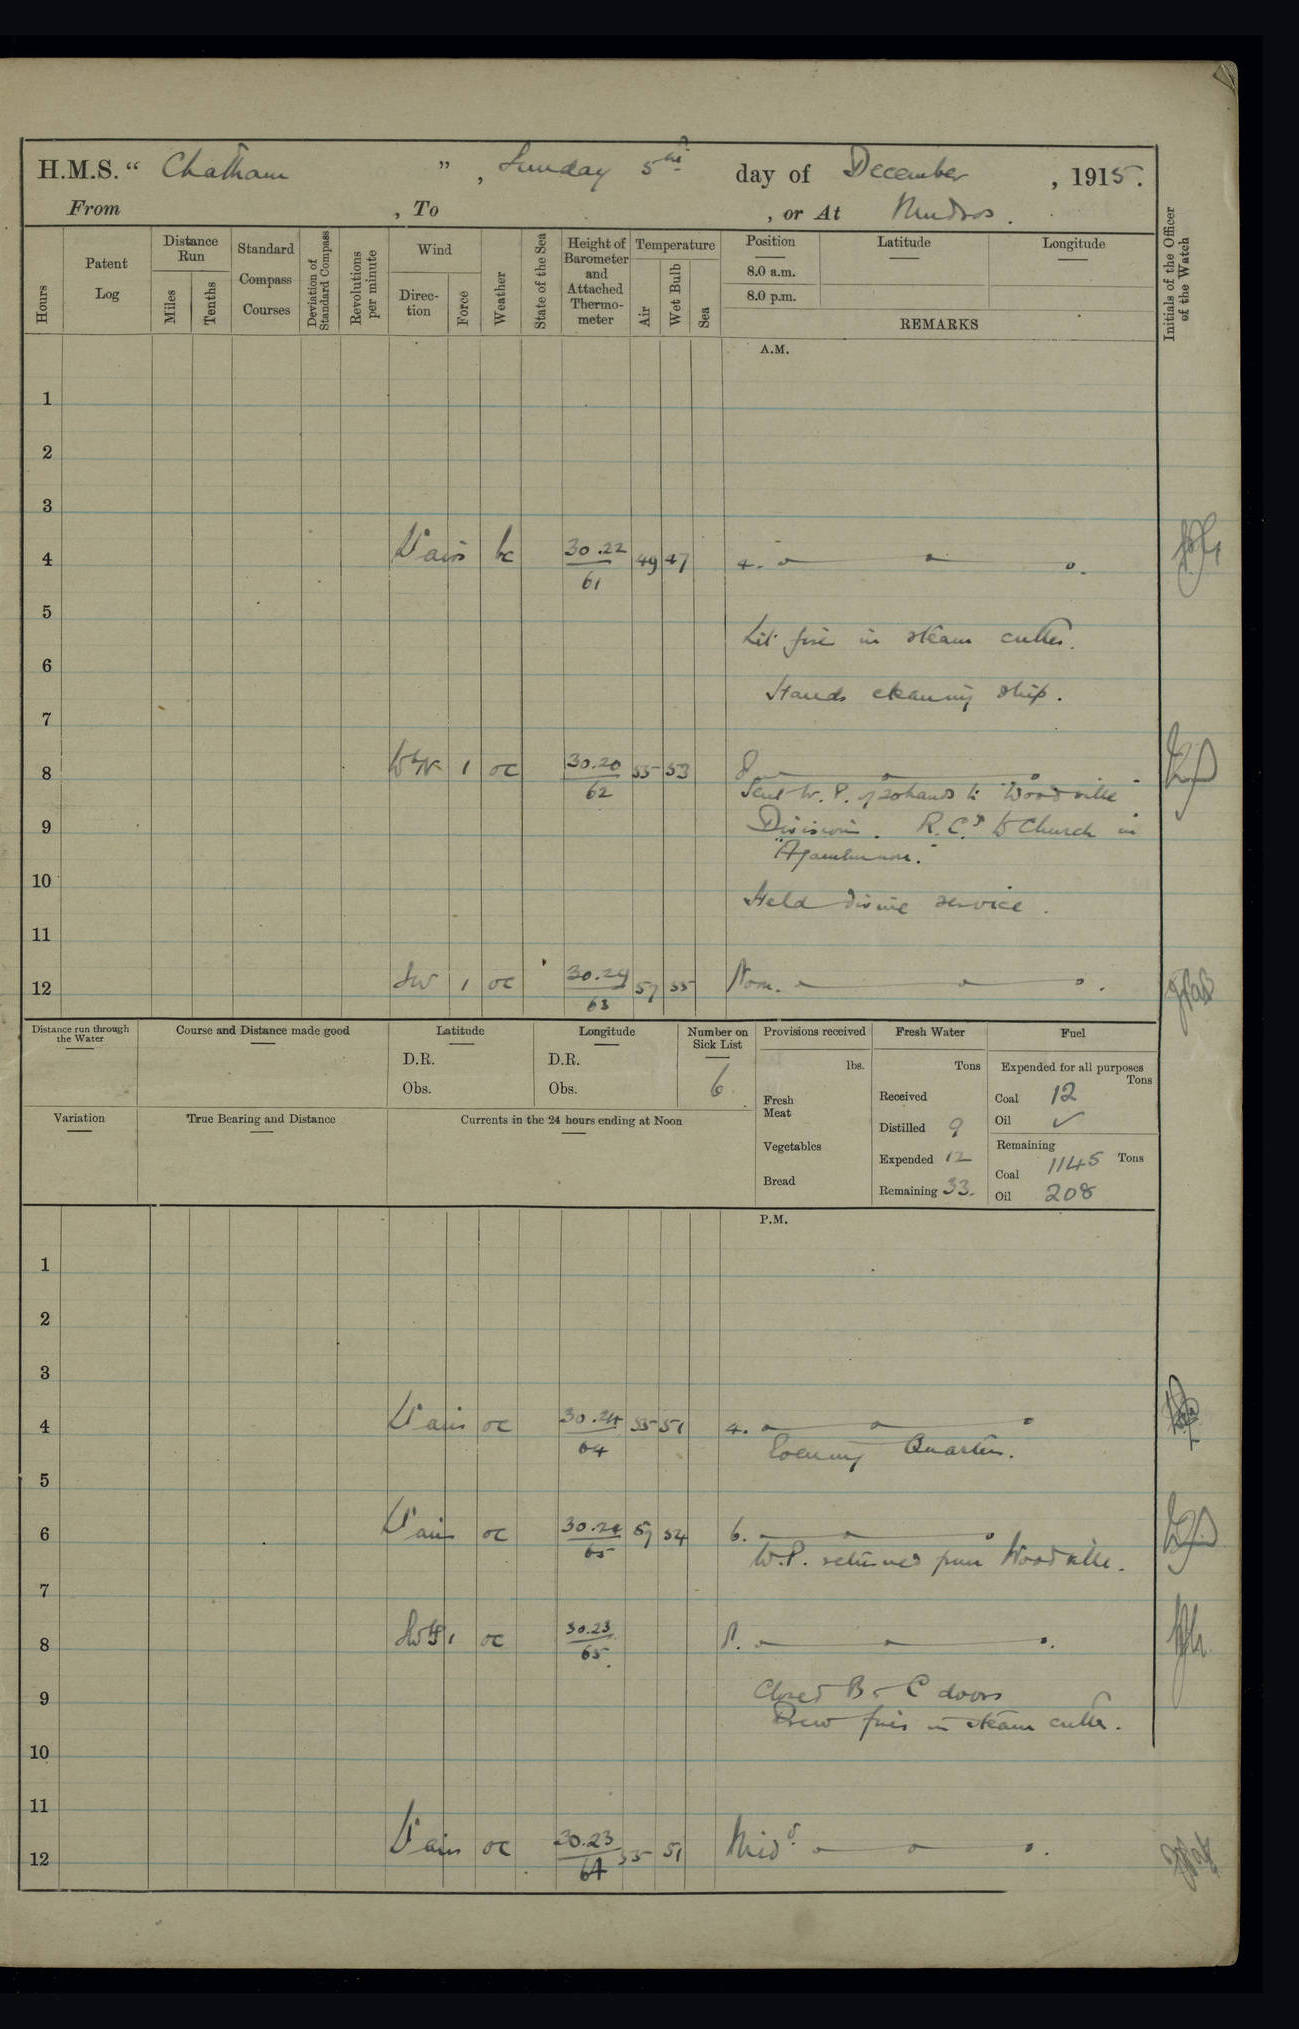 H.M.S. “ Chatham ” , Sunday 5th day of December , 1915.
From , To , or At Mudros.
Hours
Patent Log
Distance Run
Miles
Tenths
Standard Compass Courses
Deviation of Standard Compass
Revolutions per minute
Wind
Direction
Force
Weather
State of the Sea
Height of Barometer and Attached Thermometer
Temperature
Air
Wet Bulb
Sea
Position
8.0 a.m.
8.0 p.m.
Latitude
Longitude
REMARKS
Initials of the Officer of the Watch
A.M.
1
2
3
4 Lt airs bc 30.22/61 49 47 4.
5
Lit fire in steam cutter.
6
Hands cleaning ship.
7
8 WbN 1 oc 30.20/62 55 53 8
Sent W.P. of 20 hands to "Woodville"
9 Division. R.C.s to Church in
"Agamemnon."
10
Held divine service.
11
12 SW 1 oc 30.24/63 57 55 Noon.
Distance run through the Water
Course and Distance made good
Latitude
D.R.
Obs.
Longitude
D.R.
Obs.
Number on Sick List
6
Provisions received
lbs.
Fresh Meat
Vegetables
Bread
Fresh Water
Tons
Received
Distilled 9
Expended 12
Remaining 33.
Fuel
Expended for all purposes
Tons
Coal 12
Oil ✓
Remaining
Tons
Coal 1145
Oil 208
Variation
True Bearing and Distance
Currents in the 24 hours ending at Noon
P.M.
1
2
3
4 Lt airs oc 30.24/64 55 51 4.
Evening Quarters.
5
6 Lt airs oc 30.24/65 57 54 6.
W.P. returned from Woodville.
7
8 1 oc 30.23/65 8.
9 Closed B & C doors
Drew fires in steam cutter.
10
11
12 Lt airs oc 30.23/64 55 51 Midt